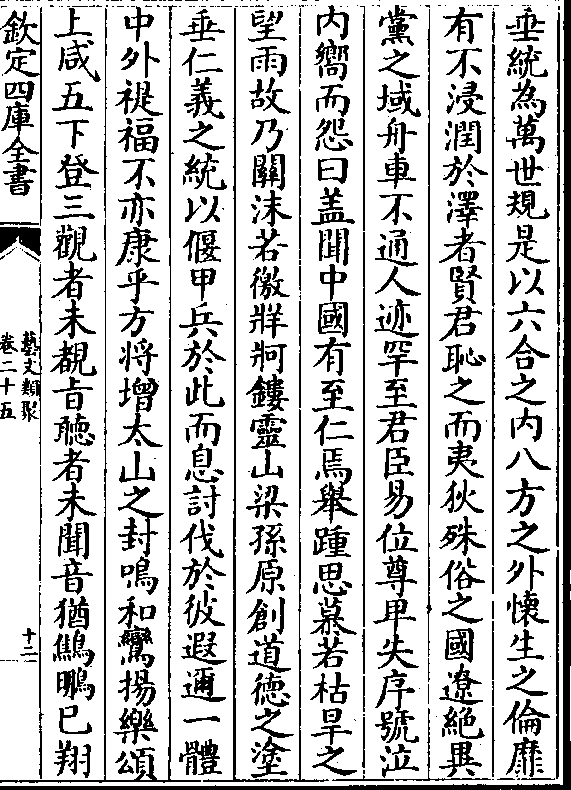 垂統為萬世規是以六合之内八方之外懐生之倫靡
有不浸潤於澤者賢君恥之而夷狄殊俗之國遼絶異
黨之域舟車不通人迹罕至君臣易位尊卑失序號泣
内嚮而怨曰盖聞中國有至仁焉舉踵思慕若枯旱之
望雨故乃關沬若徼牂牁鏤靈山梁孫原創道德之塗
垂仁義之統以偃甲兵於此而息討伐於彼遐邇一體
中外禔福不亦康乎方将増太山之封鳴和鸞揚樂頌
上咸五下登三觀者未覩㫖聴者未聞音猶鷦鵬已翔
欽定四庫全書
藝文類聚
卷二十五
十二